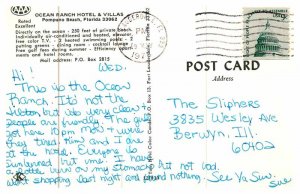 AAA
Rated
Excellent
OCEAN RANCH HOTEL & VILLAS
Pompano Beach, Florida 33062
Directly on the ocean - 250 feet of private beach
Individually air-conditioned and heated, elevator,
free color T.V. 2 heated swimming pools
putting greens - dining room - cocktail lounge
free golf all summer - efficiencies
Mail address: P.O. Box 2815
POST CARD
Address
WED.
Hi!
This is the Ocean
Ranch. It's not the
Hilton but its very clean &
people are friendly. The girls
got here 10pm Mon & were
tired. Kim and I are
at the hotel. Everyone is
sunburned but me. I have
a little on my stomach but not bad.
Went shopping last night and found nothing. See Ya Sun.
Sue
The Sliphers
3835 Wesley Ave
Berwyn, Ill.
60402